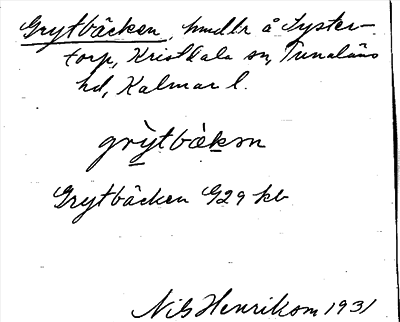 Grytbäcken, hmdtr å Syster-
torp, Kristdala sn, Tunaläns
hd, Kalmar l.
grỳtbɛ̀kən
Grytbäcken G29 kb
Nils Henrikson 1931